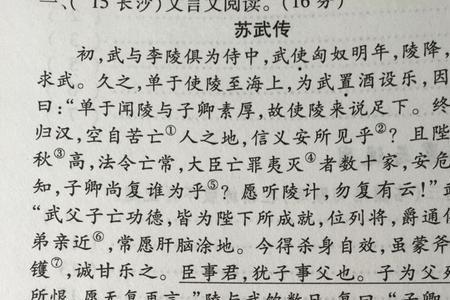 一、(’15长沙)文言文阅读。(16分)
苏武传
初,武与李陵俱为侍中,武使匈奴明年,陵降,
求武。久之,单于使陵至海上,为武置酒设乐,因
曰:“单于闻陵与子卿素厚,故使陵来说足下。终
归汉,空自苦亡①人之地,信义安所见乎②?且陛
秋③高,法令亡常,大臣亡罪夷灭④者数十家,安危
知,子卿尚复谁为乎⑤?愿听陵计,勿复有云!”武
“武父子亡功德,皆为陛下所成就,位列将,爵通侯
弟亲近⑥,常愿肝脑涂地。今得杀身自效,虽蒙斧
镬⑦,诚甘乐之。臣事君,犹子事父也。子为父死
所恨,愿无复再言。”陵与武饮数日,复曰:“子卿